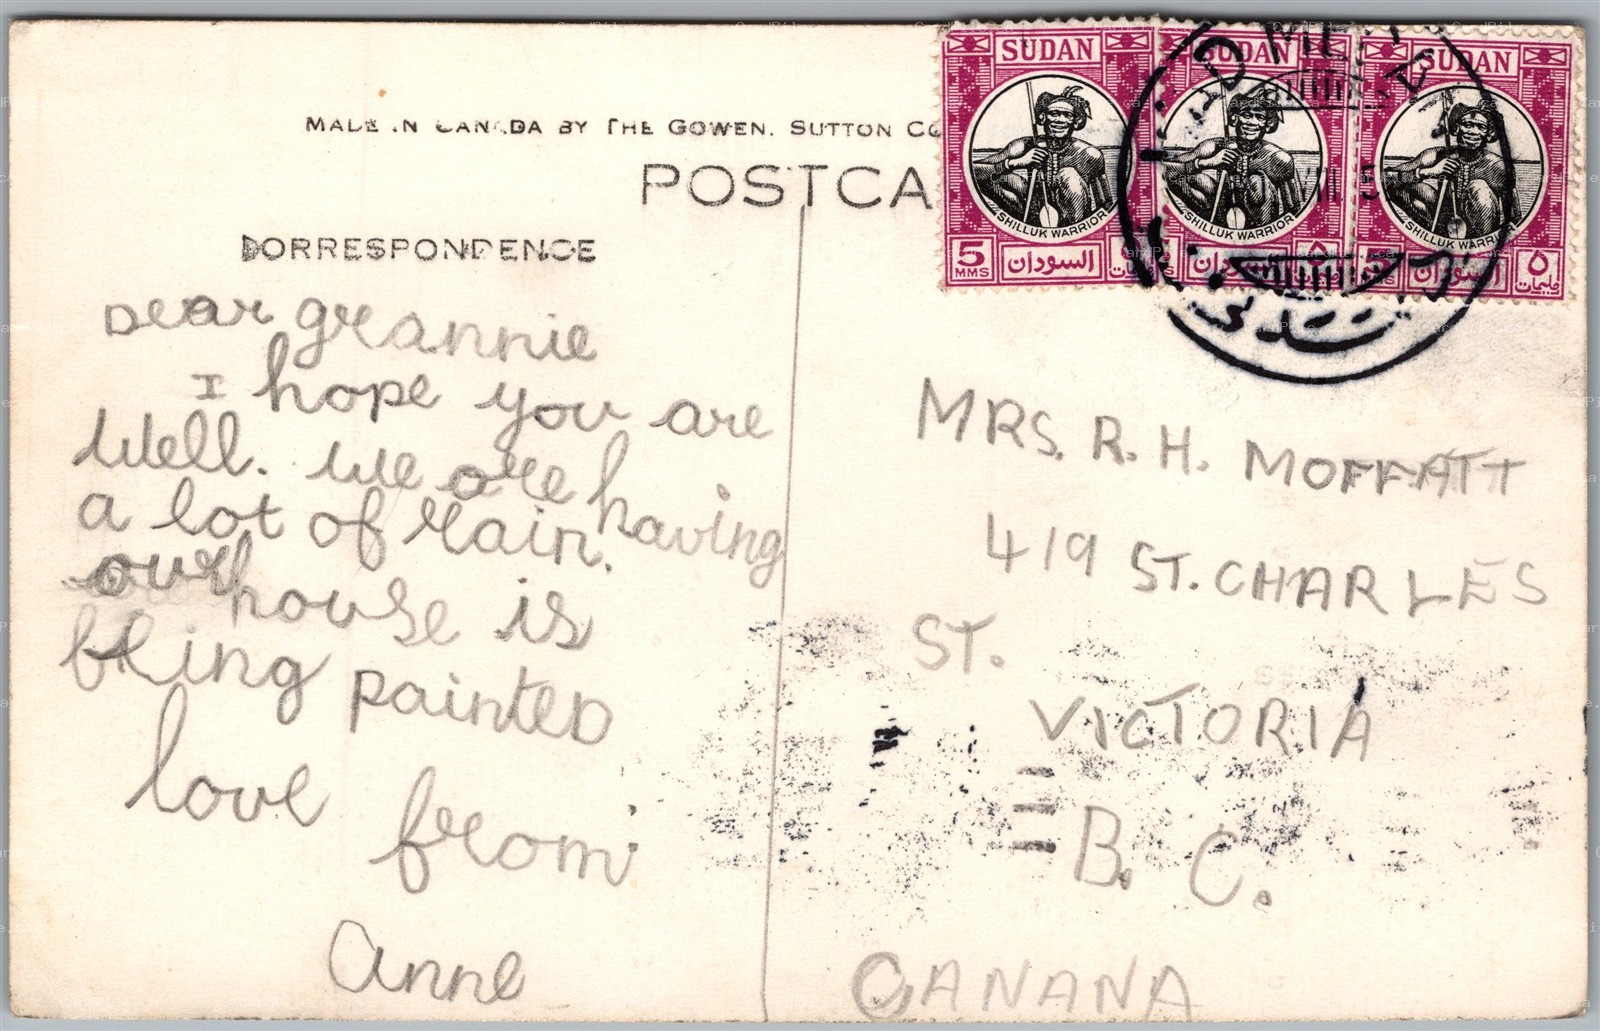 MADE IN CANADA BY THE GOWEN, SUTTON CO
POSTCA
CORRESPONDENCE
SUDAN
SUDAN
SUDAN
SHILLUK WARRIOR
SHILLUK WARRIOR
SHILLUK WARRIOR
5 MMS السودان
السودان ٥
5 السودان ٥ مليمات
Dear grannie
I hope you are
well. We are having
a lot of rain.
our house is
being painted
love from
Anne
MRS. R. H. MOFFATT
419 ST. CHARLES
ST.
VICTORIA
B. C.
CANANA